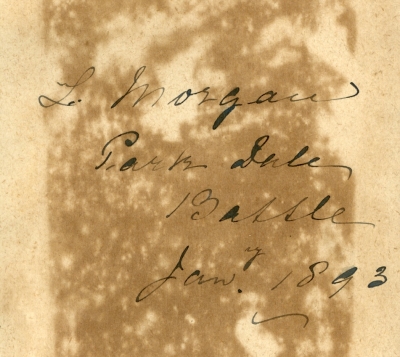 L. Morgan
Park Dale
Battle
Jan.y 1893